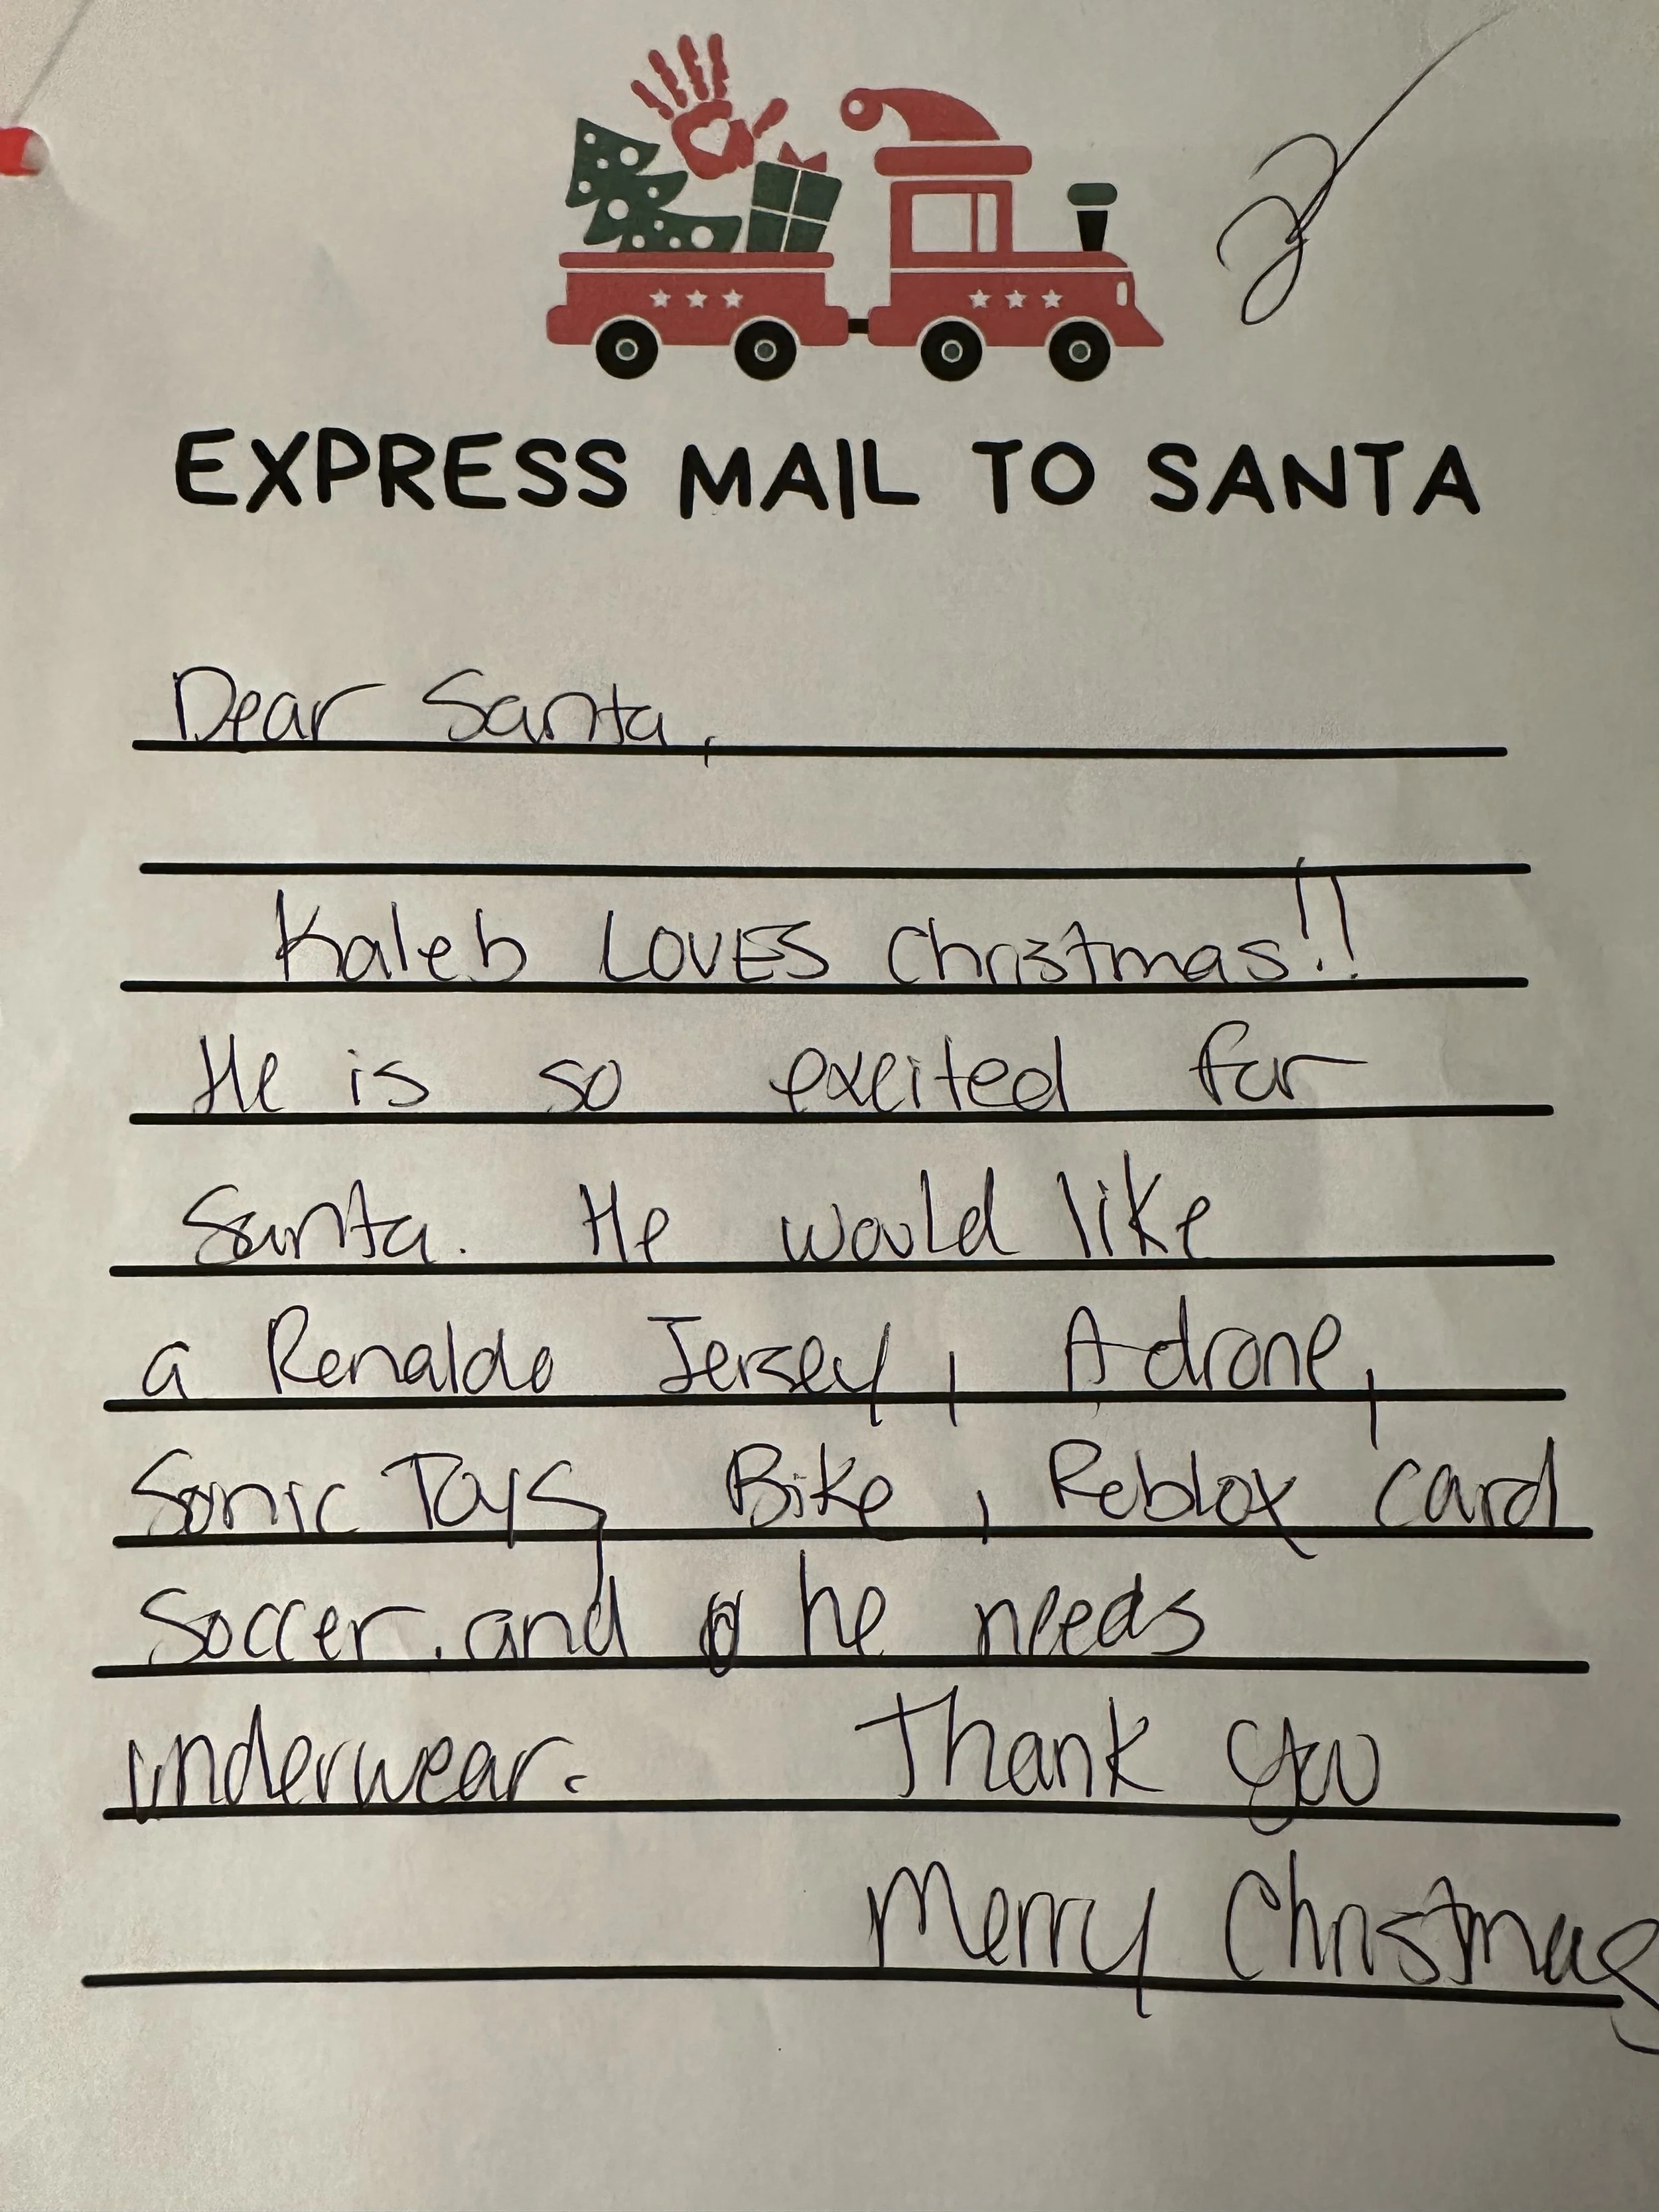 EXPRESS MAIL TO SANTA
Dear Santa,
Kaleb LOVES Christmas!!
He is so excited for
Santa. He would like
a Renaldo Jersey, A drone,
Sonic Toys, Bike, Roblox card
Soccer. and he needs
underwear. Thank you
Merry Christmas